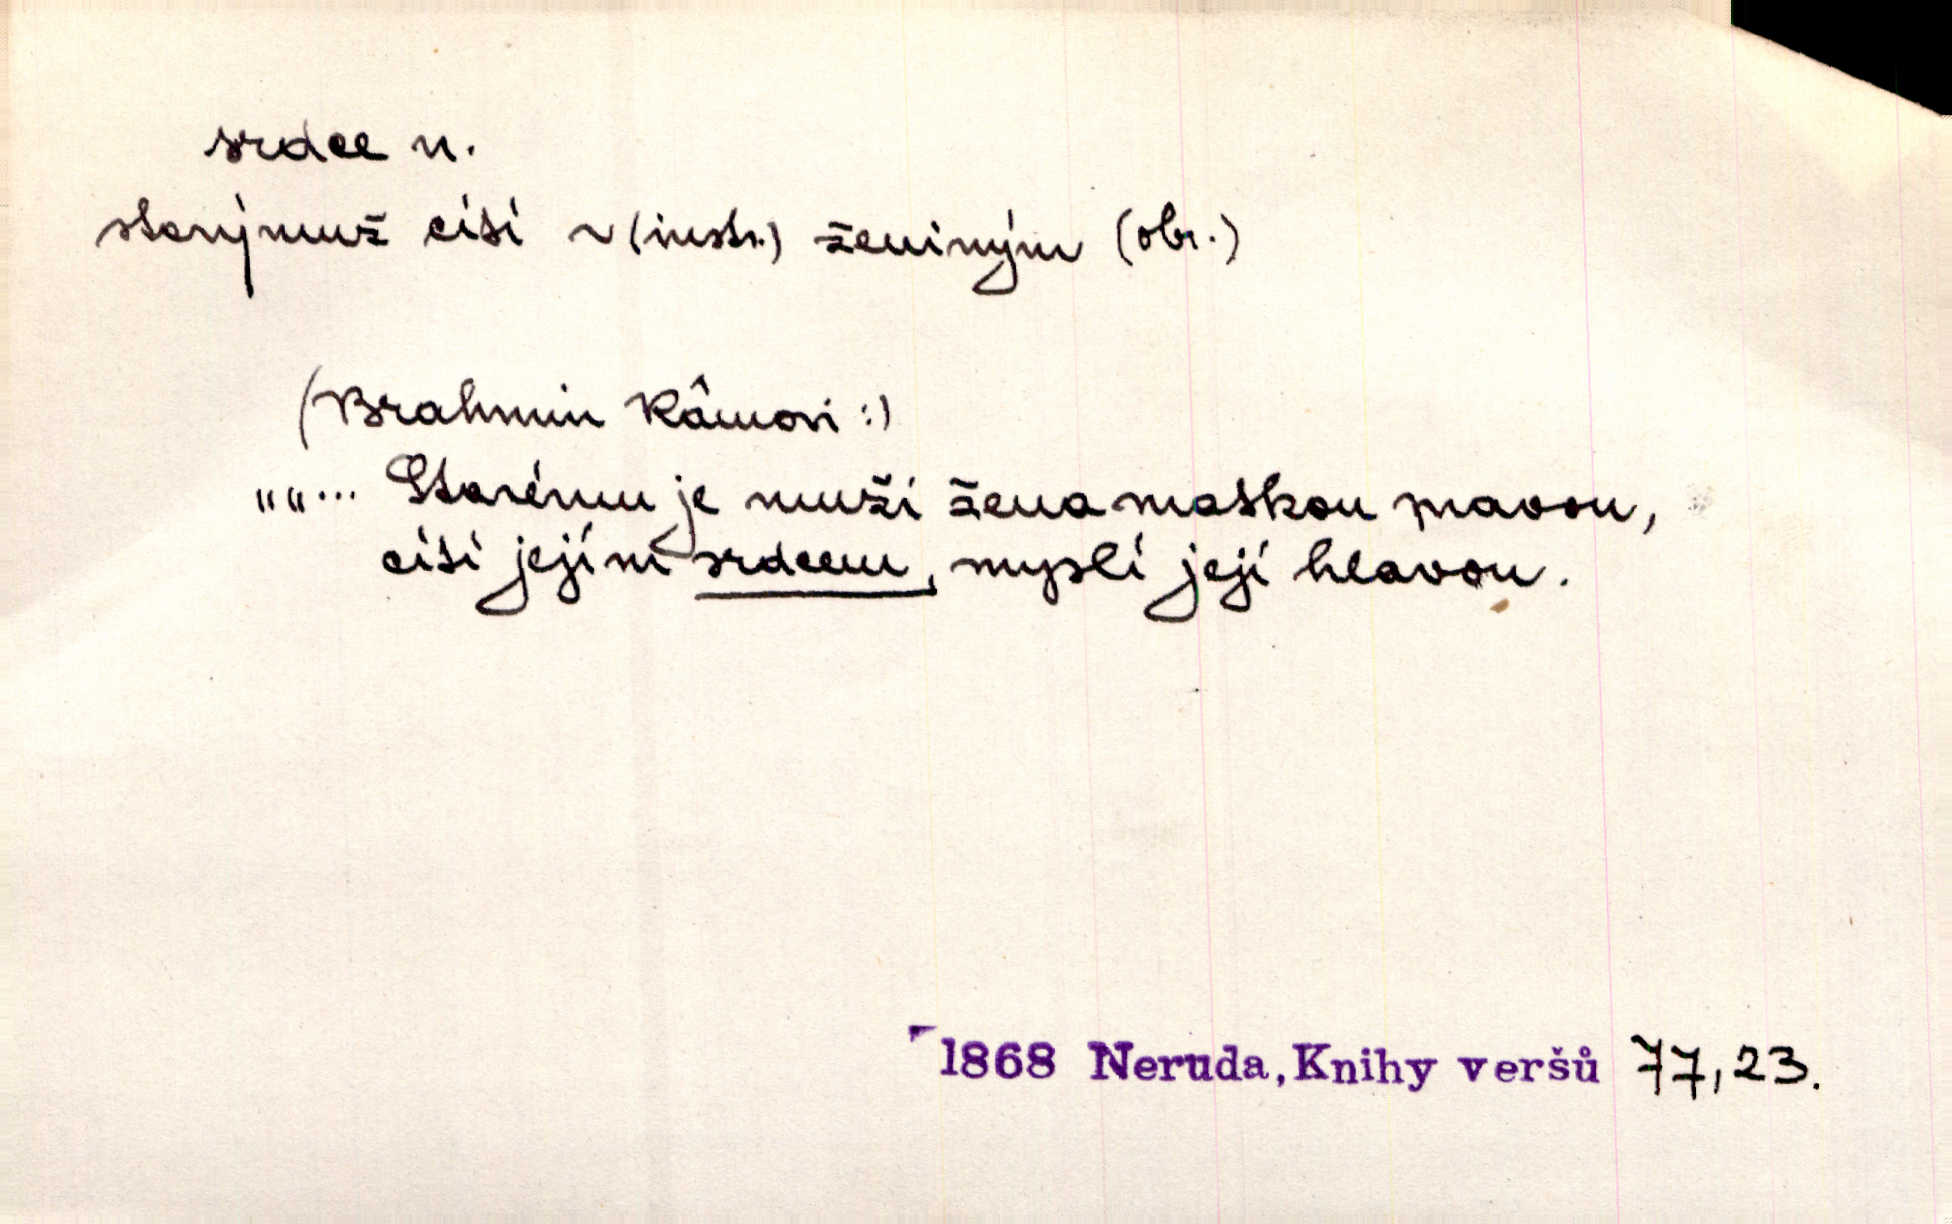 srdce n.
starý muž cítí ~ (instr.) ženiným (obr.)
(Brahmin Râmovi :)
„„... Starému je muži žena maskou pravou,
cítí jejím srdcem, myslí její hlavou.
1868 Neruda, Knihy veršů 77, 23.